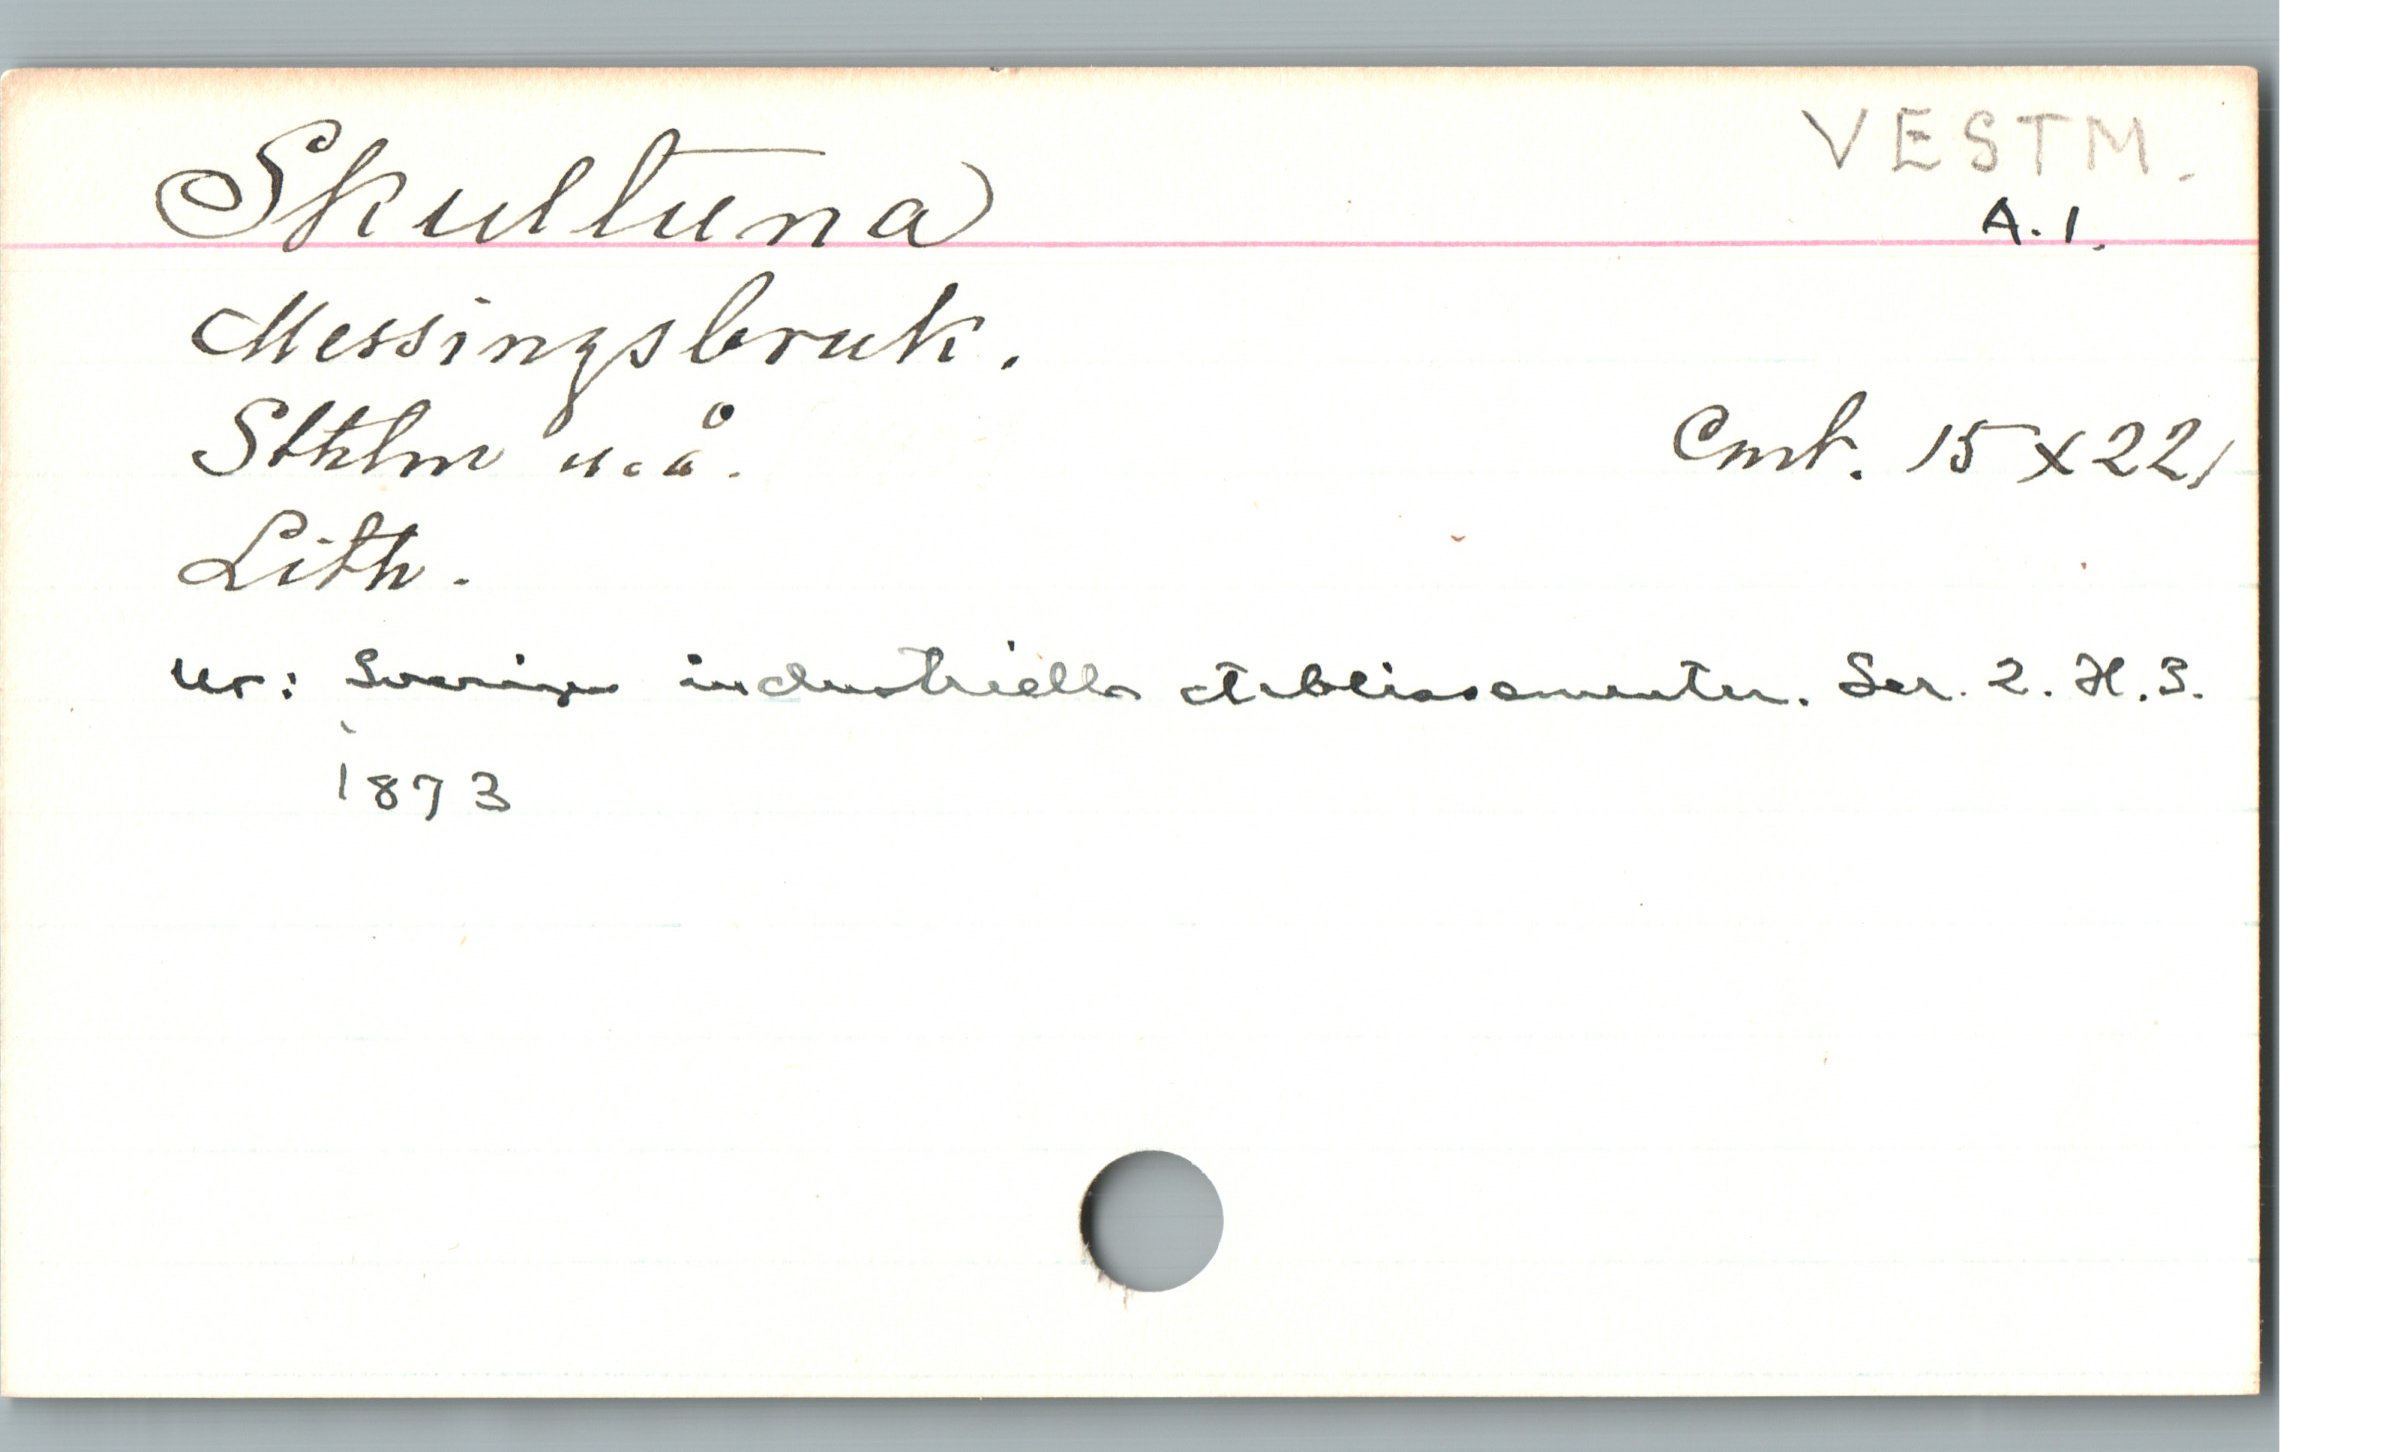 VESTM.
Skultuna
A. 1.
Messingsbruk.
Sthlm u. å.
Cmt. 15 x 22,
Lith.
Ur: Sveriges industriella etablissementer. Ser. 2. H. 3.
1873